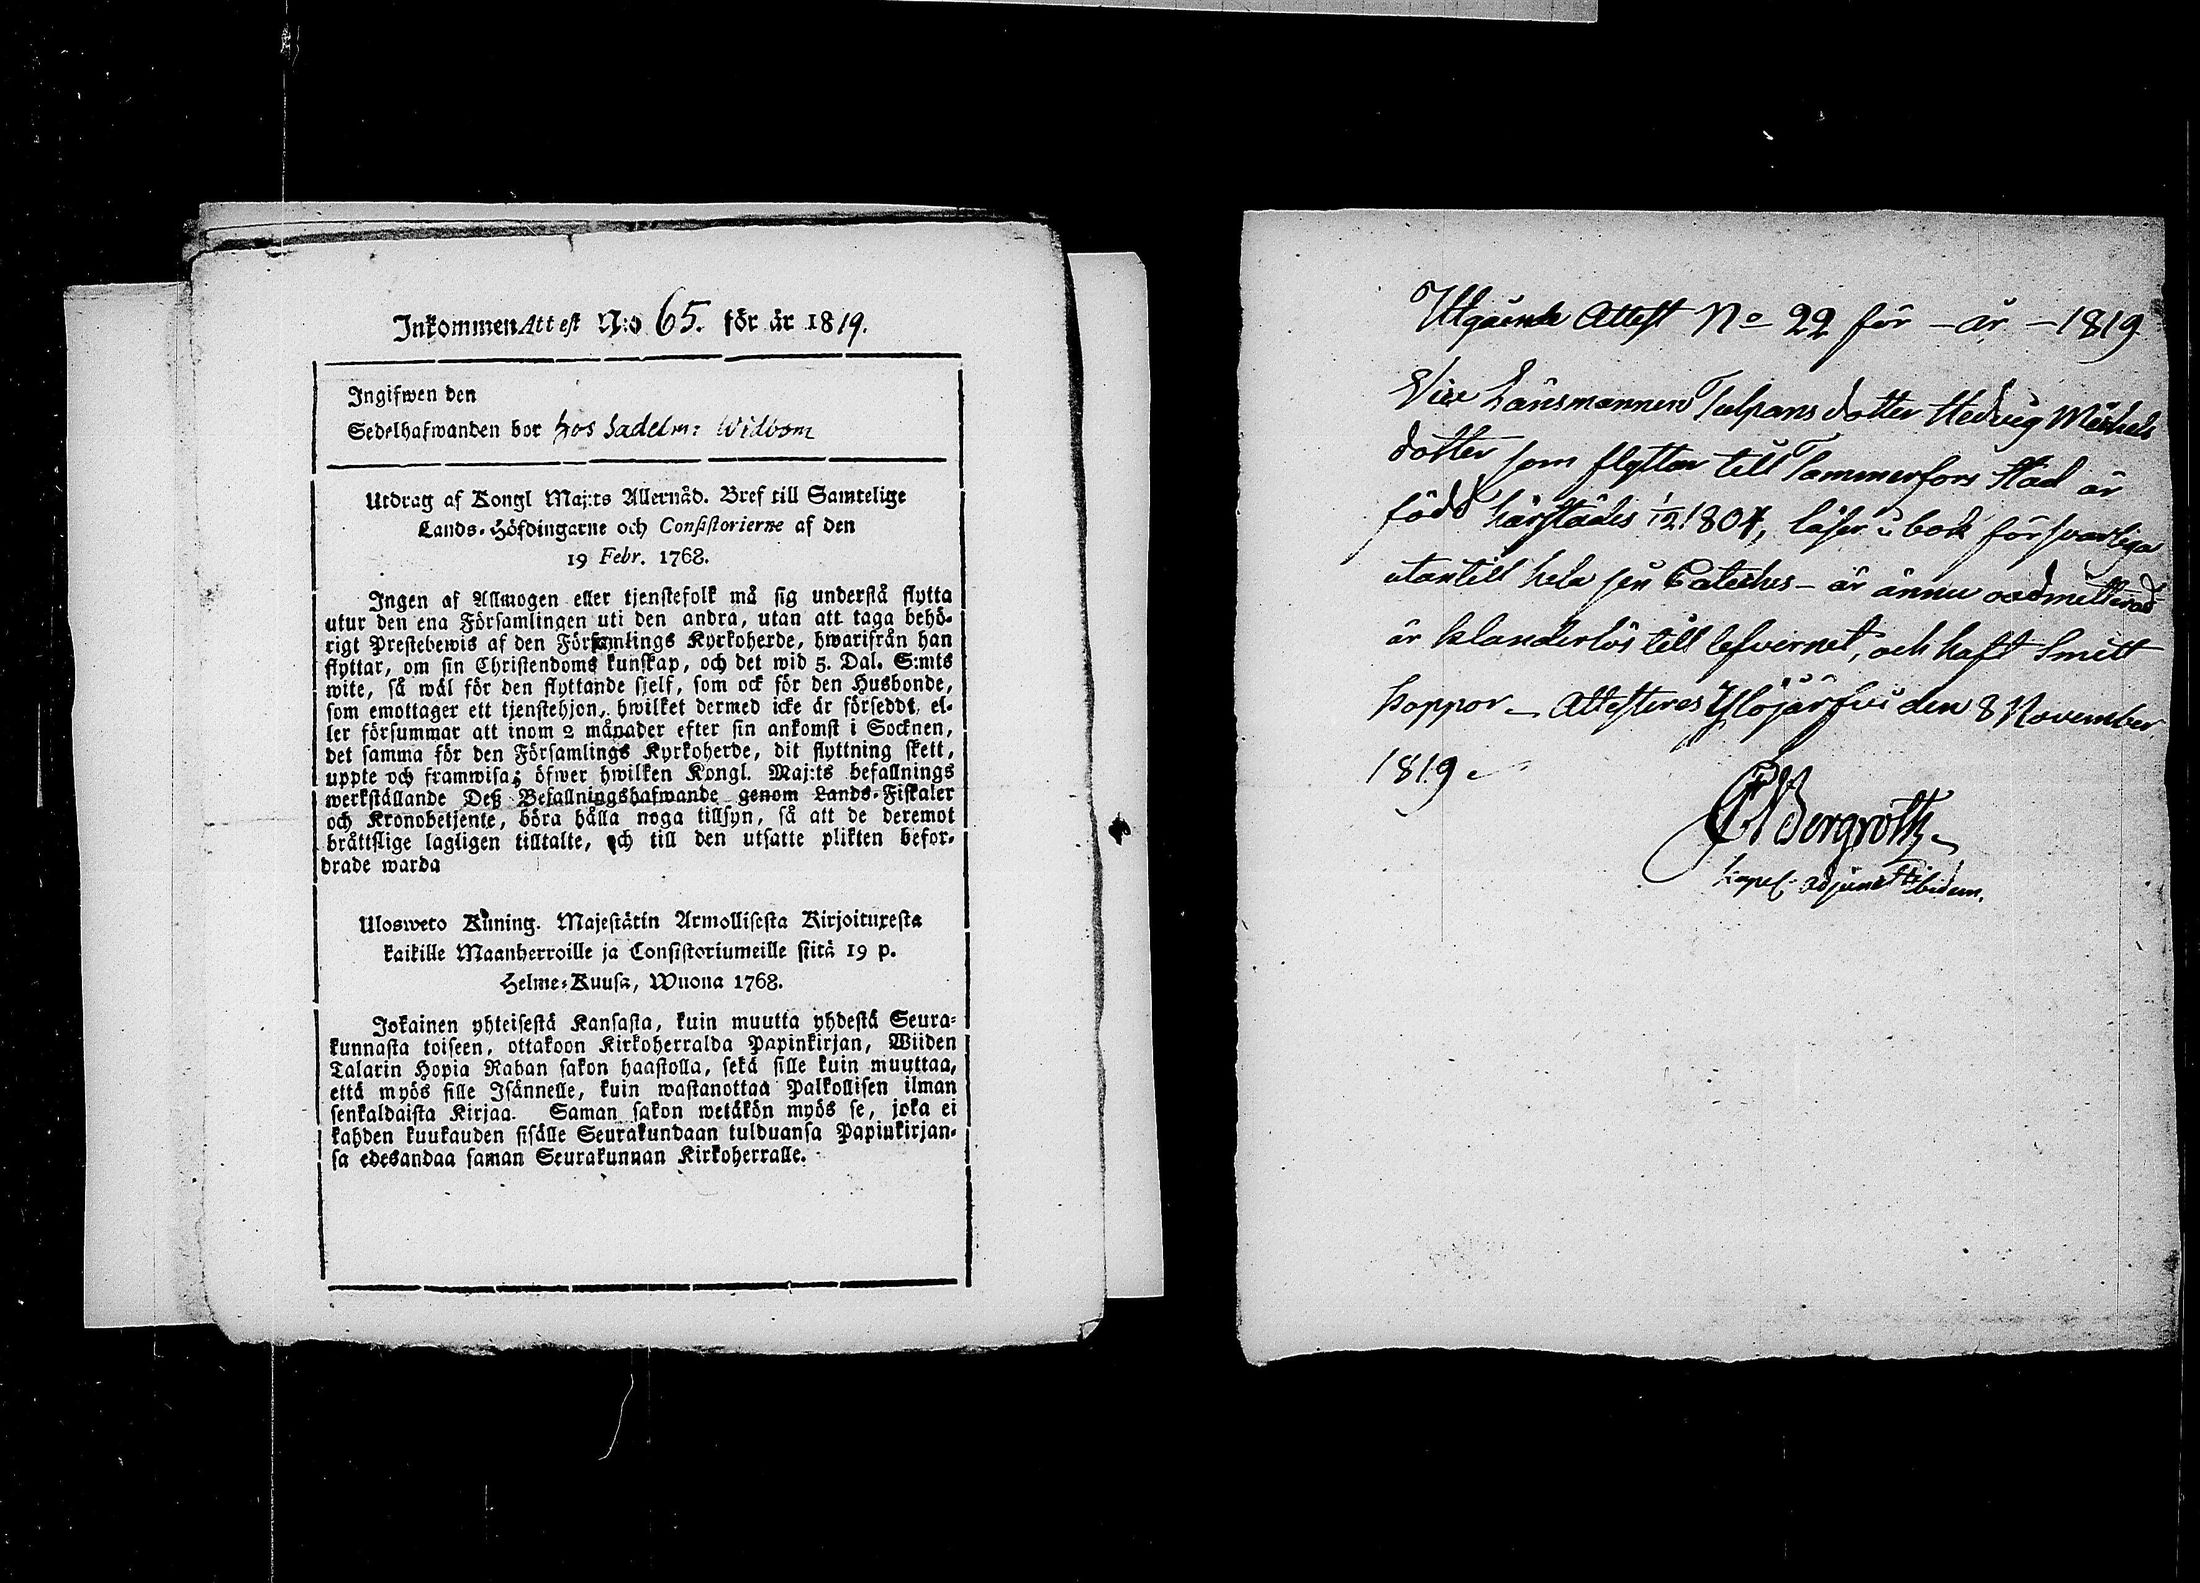 Inkommen Attest N:o 65. för år 1819.
Ingifwen den
Sedelhafwanden bor hos Sadelm: Widbom
Utdrag af Kongl Maj:ts Allernåd. Bref till Samtelige
Lands-Höfdingarne och Consistorierne af den
19 Febr. 1768.
Ingen af Allmogen eller tjenstefolk må sig understå flytta
utur den ena Församlingen uti den andra, utan att taga behö-
rigt Prestebewis af den Församlings Kyrkoherde, hwarifrån han
flyttar, om sin Christendoms kunskap, och det wid 5. Dal. S:mts
wite, så wäl för den flyttande sjelf, som ock för den Husbonde,
som emottager ett tjenstehjon, hwilket dermed icke är försedt, el-
ler försummar att inom 2 månader efter sin ankomst i Socknen,
det samma för den Församlings Kyrkoherde, dit flyttning skett,
uppte och framwisa; öfwer hwilken Kongl. Maj:ts befallnings
werkställande Deß Befallningshafwande genom Lands-Fiskaler
och Kronobetjente, böra hålla noga tillsyn, så att de deremot
bråttslige lagligen tilltalte, och till den utsatte plikten befor-
drade warda
Ulosweto Kuning. Majestätin Armollisesta Kirjoituxesta
kaikille Maanherroille ja Consistoriumeille siitä 19 p.
Helme-Kuusa, Wuona 1768.
Jokainen yhteisestä Kansasta, kuin muutta yhdestä Seura-
kunnasta toiseen, ottakoon Kirkoherralda Papinkirjan, Wiiden
Talarin Hopia Rahan sakon haastolla, sekä sille kuin muuttaa,
että myös sille Isännelle, kuin wastanottaa Palkollisen ilman
senkaldaista Kirjaa. Saman sakon wetäkön myös se, joka ei
kahden kuukauden sisälle Seurakundaan tulduansa Papinkirjan-
sa edesandaa saman Seurakunnan Kirkoherralle.
Utgående Attest No 22 för - år - 1819
Vice Länsmannen Talpans dotter Hedvig Michels
dotter som flyttar till Tammerfors Stad är
född härstädes 1/12 1804, läser i bok försvarliga
utantill hela sin Cateches - är ännu oadmitterad
är klanderlös till lefvernet, och haft Smitt
koppor - Attesteras Ylöjärfvi den 8 November
1819
Bergroth
Kapel: adjunct Ibidem.